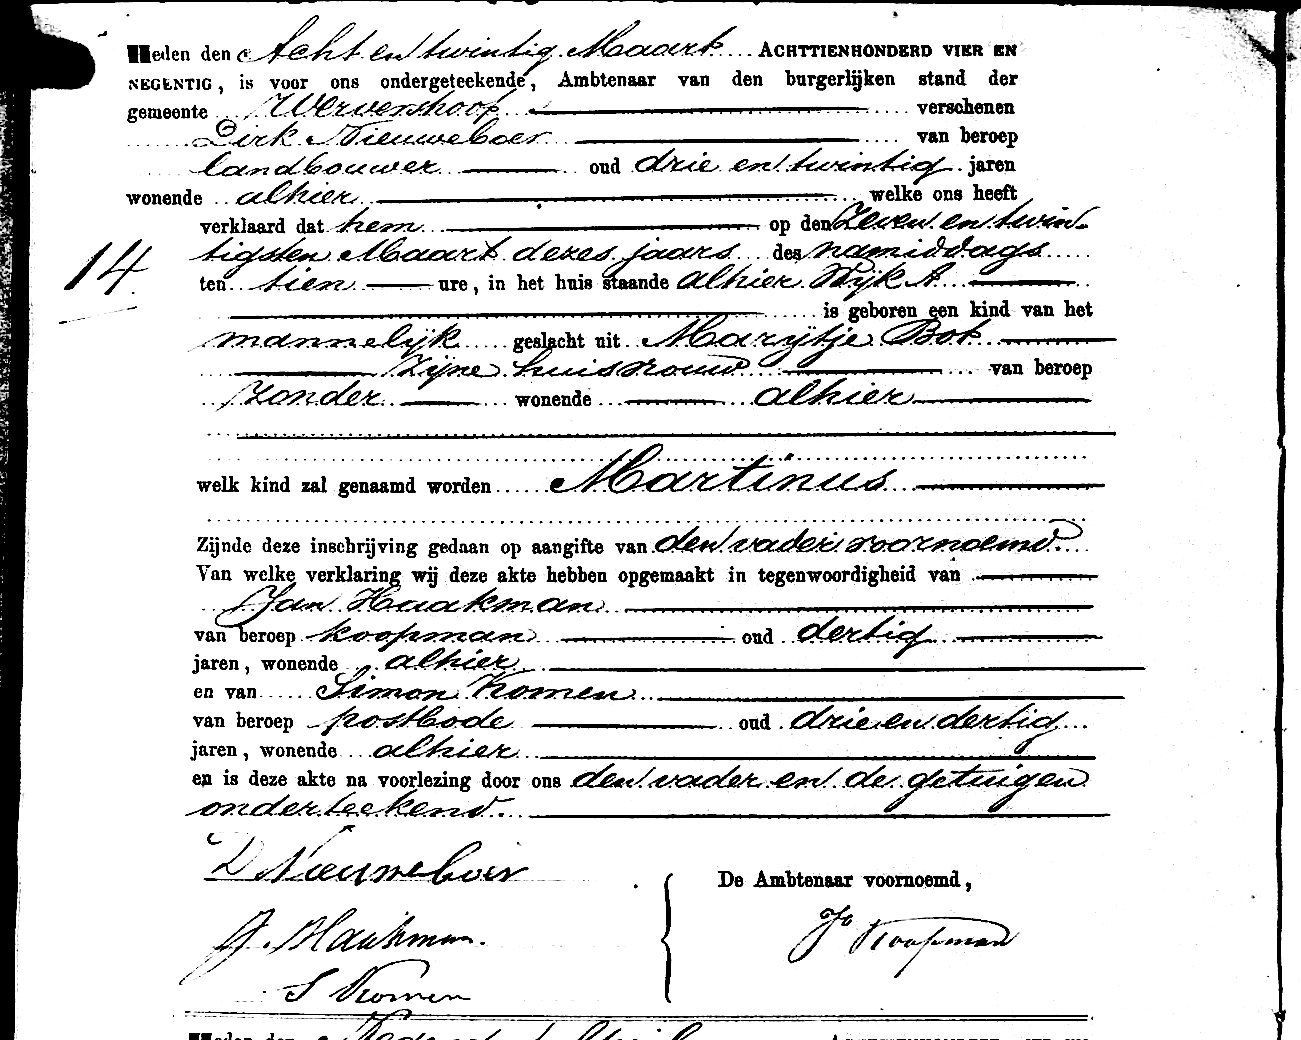 Heden den Acht en twintig Maart ACHTTIENHONDERD VIER EN
NEGENTIG, is voor ons ondergeteekende, Ambtenaar van den burgerlijken stand der
gemeente Wervershoof verschenen
Dirk Nieuweboer van beroep
landbouwer oud drie en twintig jaren
wonende alhier welke ons heeft
verklaard dat hem op den Zeven en twin-
14 tigsten Maart dezes jaars des namiddags
ten tien ure, in het huis staande alhier Wijk A.
is geboren een kind van het
mannelijk geslacht uit Marijtje Bot
zijne huisvrouw van beroep
zonder wonende alhier
welk kind zal genaamd worden Martinus
Zijnde deze inschrijving gedaan op aangifte van den vader voornoemd.
Van welke verklaring wij deze akte hebben opgemaakt in tegenwoordigheid van
Jan Haakman
van beroep koopman oud dertig
jaren, wonende alhier
en van Simon Komen
van beroep postbode oud drie en dertig
jaren, wonende alhier
en is deze akte na voorlezing door ons den vader en de getuigen
onderteekend.
D Nieuweboer
De Ambtenaar voornoemd,
J. Haakman.
Koopman
S Komen
Heden den